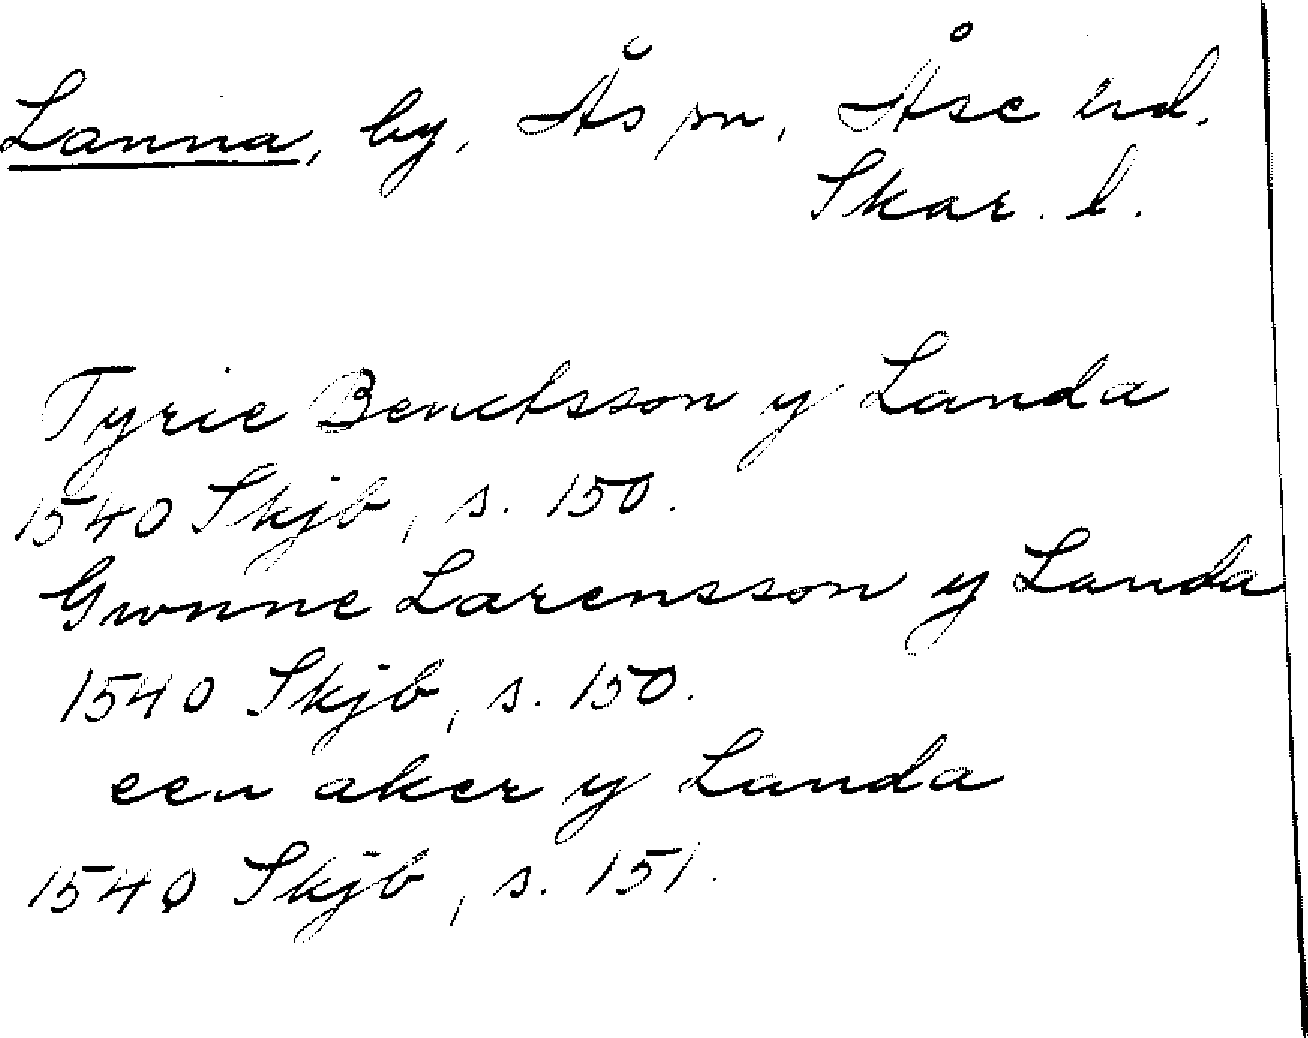 Lanna, by, Ås sn, Åse hd.
Skar. l.
Tyrie Benctsson y Landa
1540 Skjb, s. 150.
Gwnne Larensson y Landa
1540 Skjb, s. 150.
een aker y Landa
1540 Skjb, s. 151.